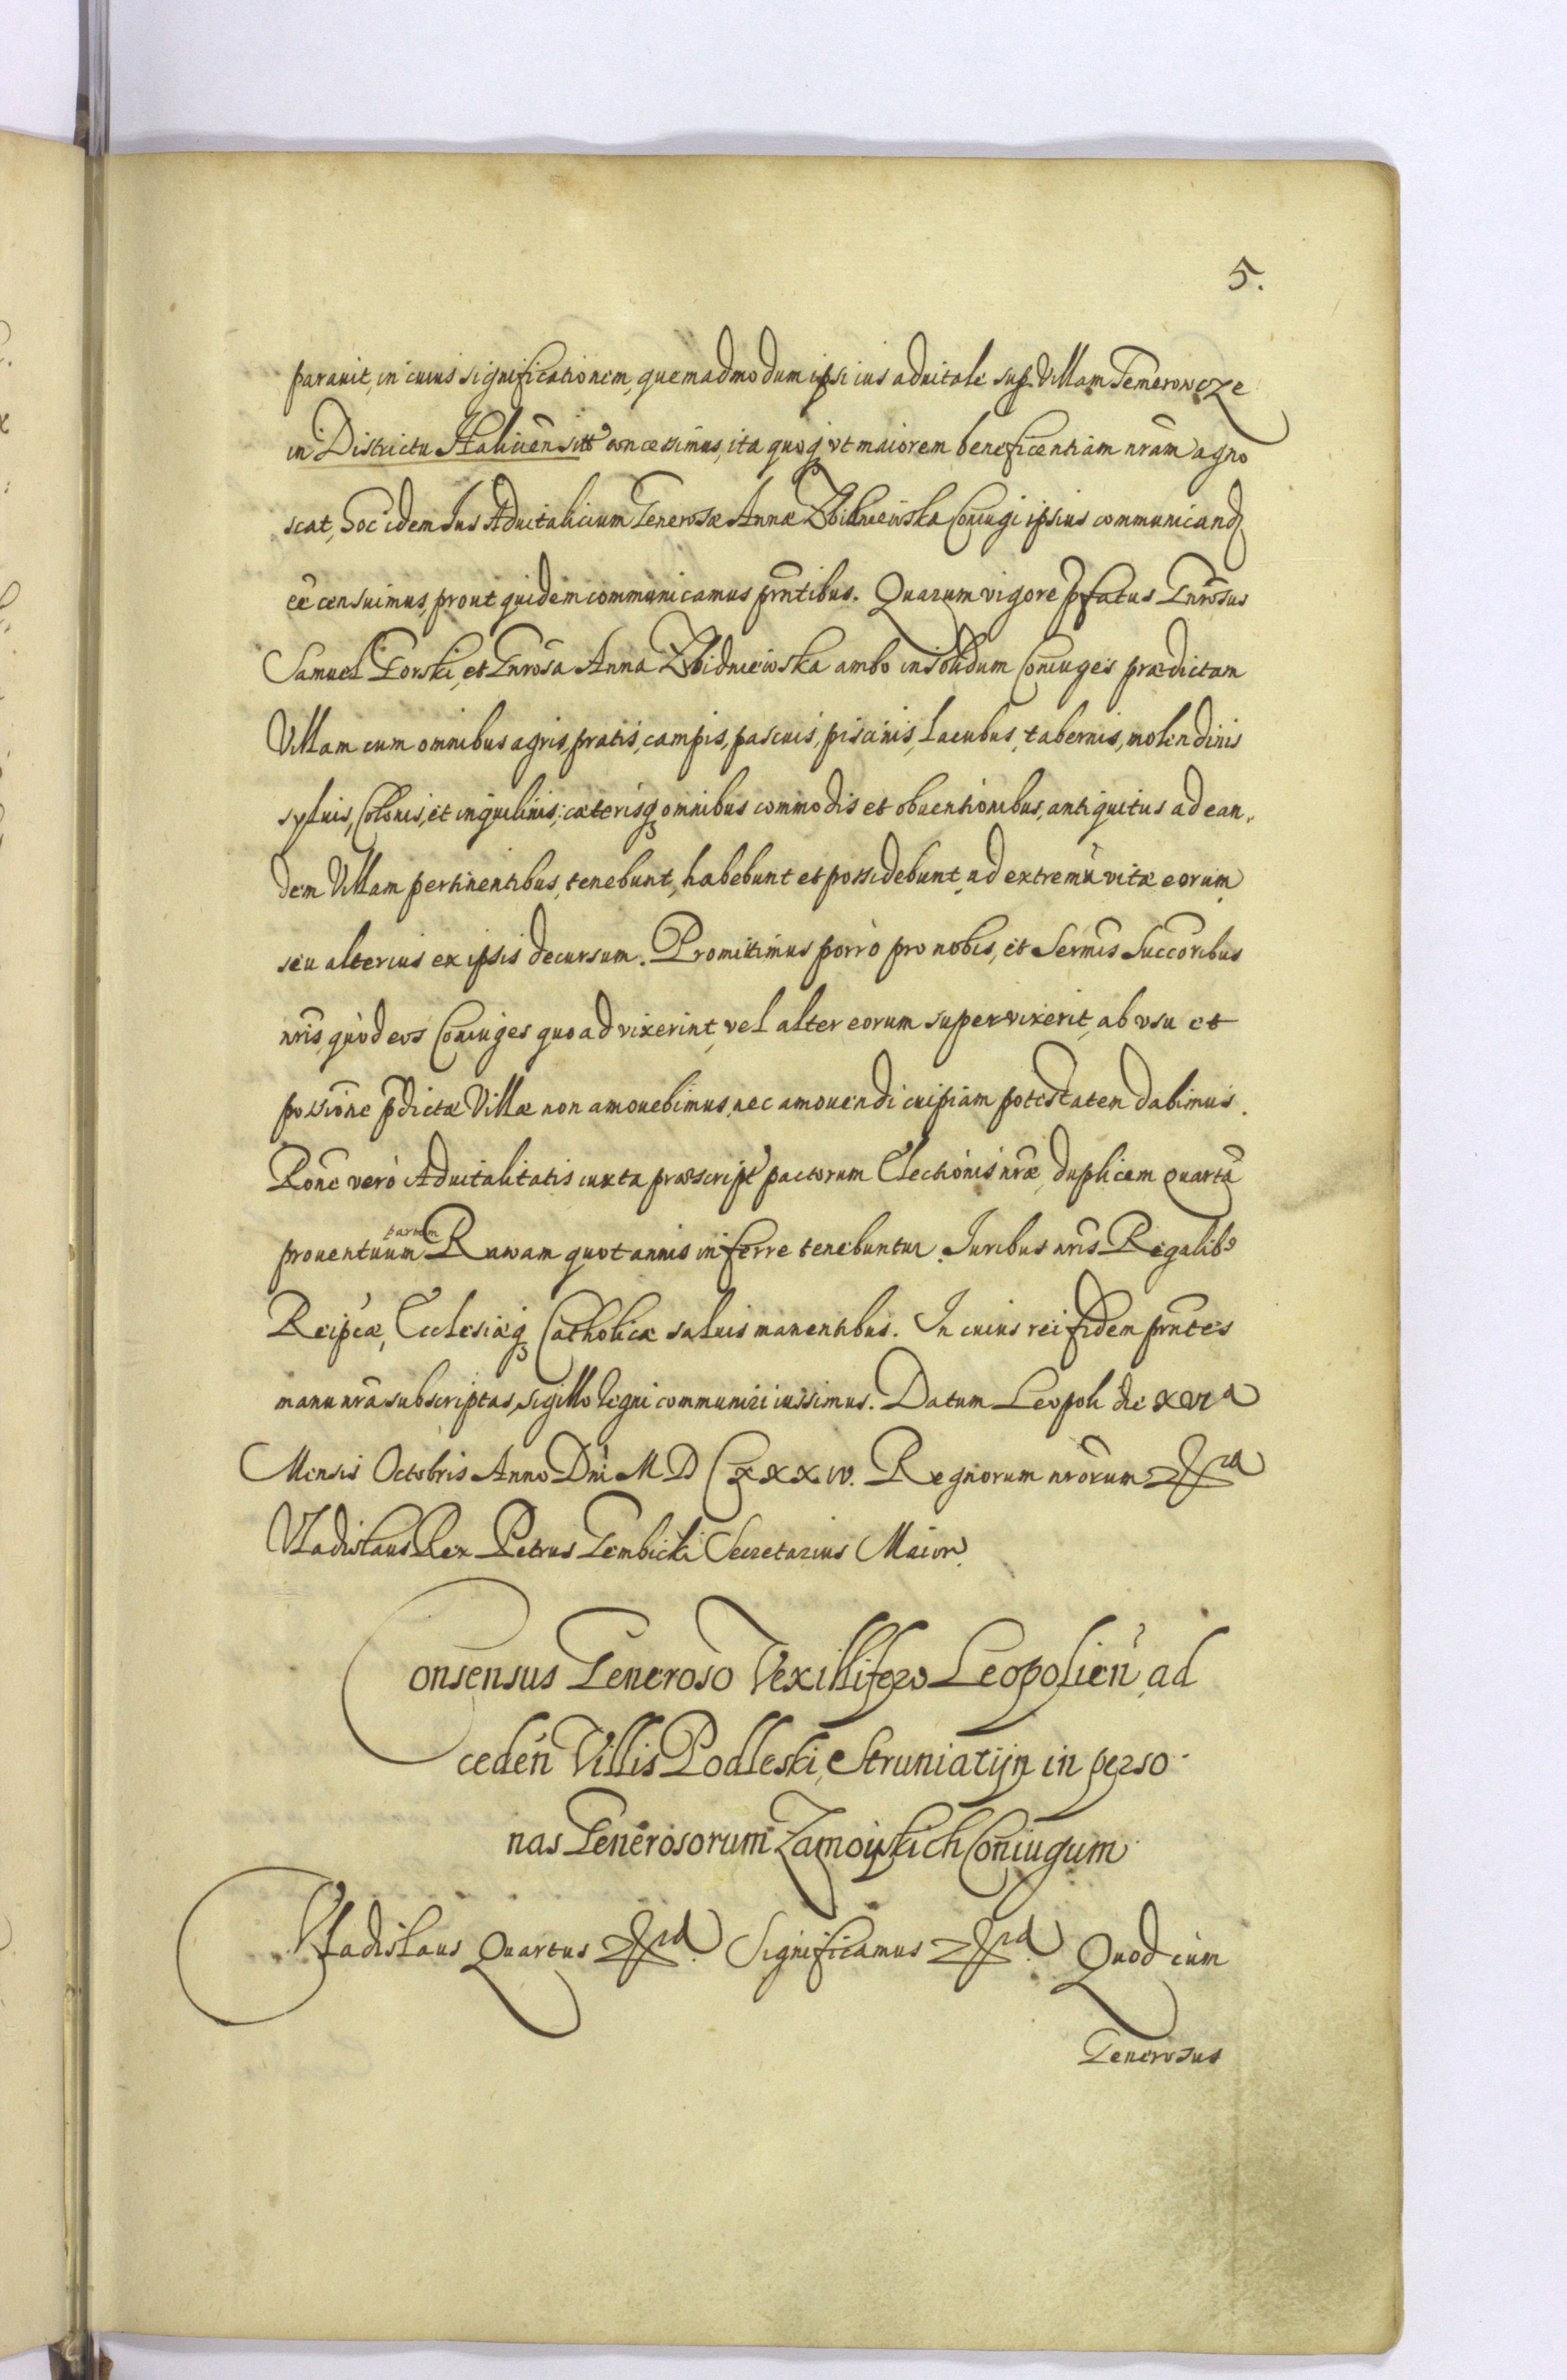 5.
parauit, in cuius significationem, quemadmodum ipsi ius aduitale sup. Villam Temerowcze
in Districtu Haliciēn sitt concessimus, ita quoq vt maiorem beneficentiam nrām agno
scat, Hoc idem Ius Aduitalicium Generosæ Annæ Zbidniewska Coniugi ipsius communicand
eē censuimus, prout quidem communicamus prñtibus. Quarum vigore p̄fatus Gnrōsus
Samuel Gorski, et Gnrōsa Anna Zbidniewska ambo insolidum Coniuges prædictam
Villam cum omnibus agris, pratis, campis, pascuis, piscinis, Lacubus, tabernis, molendinis
syluis, Colonis, et inquilinis, cæterisq omnibus commodis et obuentionibus, antiquitus ad ean,
dem Villam pertinentibus, tenebunt, habebunt et possidebunt, ad extremū vitæ eorum,
seu alterius ex ipsis decursum. Promittimus porrò pro nobis, et Sermīs Succōribus
nrīs, quòd eos Coniuges quoad vixerint, vel alter eorum superuixerit, ab vsu et
possiōne p̄dictæ Villæ non amouebimus, nec amouendi cuipiam potestatem dabimus.
Rōne verò Aduitalitatis iuxta præscript pactorum Electionis nrǣ, duplicem quartā
partem
prouentuum Rawam quotannis inferre tenebuntur. Iuribus nrīs Regalib9
Reipcæ, Ecclesiæq Catholicæ saluis manentibus. In cuius rei fidem prñtes
manu nrā subscriptas, sigillo Regni communiri iussimus. Datum Leopoli die XVIa
Mensis Octobris Anno Dnī M D C XXXIV. Regnorum nrōrum &ra
Vladislaus Rex Petrus Gembicki Secretarius Maior.
Consensus Generoso Vexillifero Leopolień ad
cedeń Villis Podleski, Struniatijn in perso
nas Generosorum Zamoyskich Coniugum
Vladislaus Quartus &ra. Significamus &ra. Quod cum
Generosus